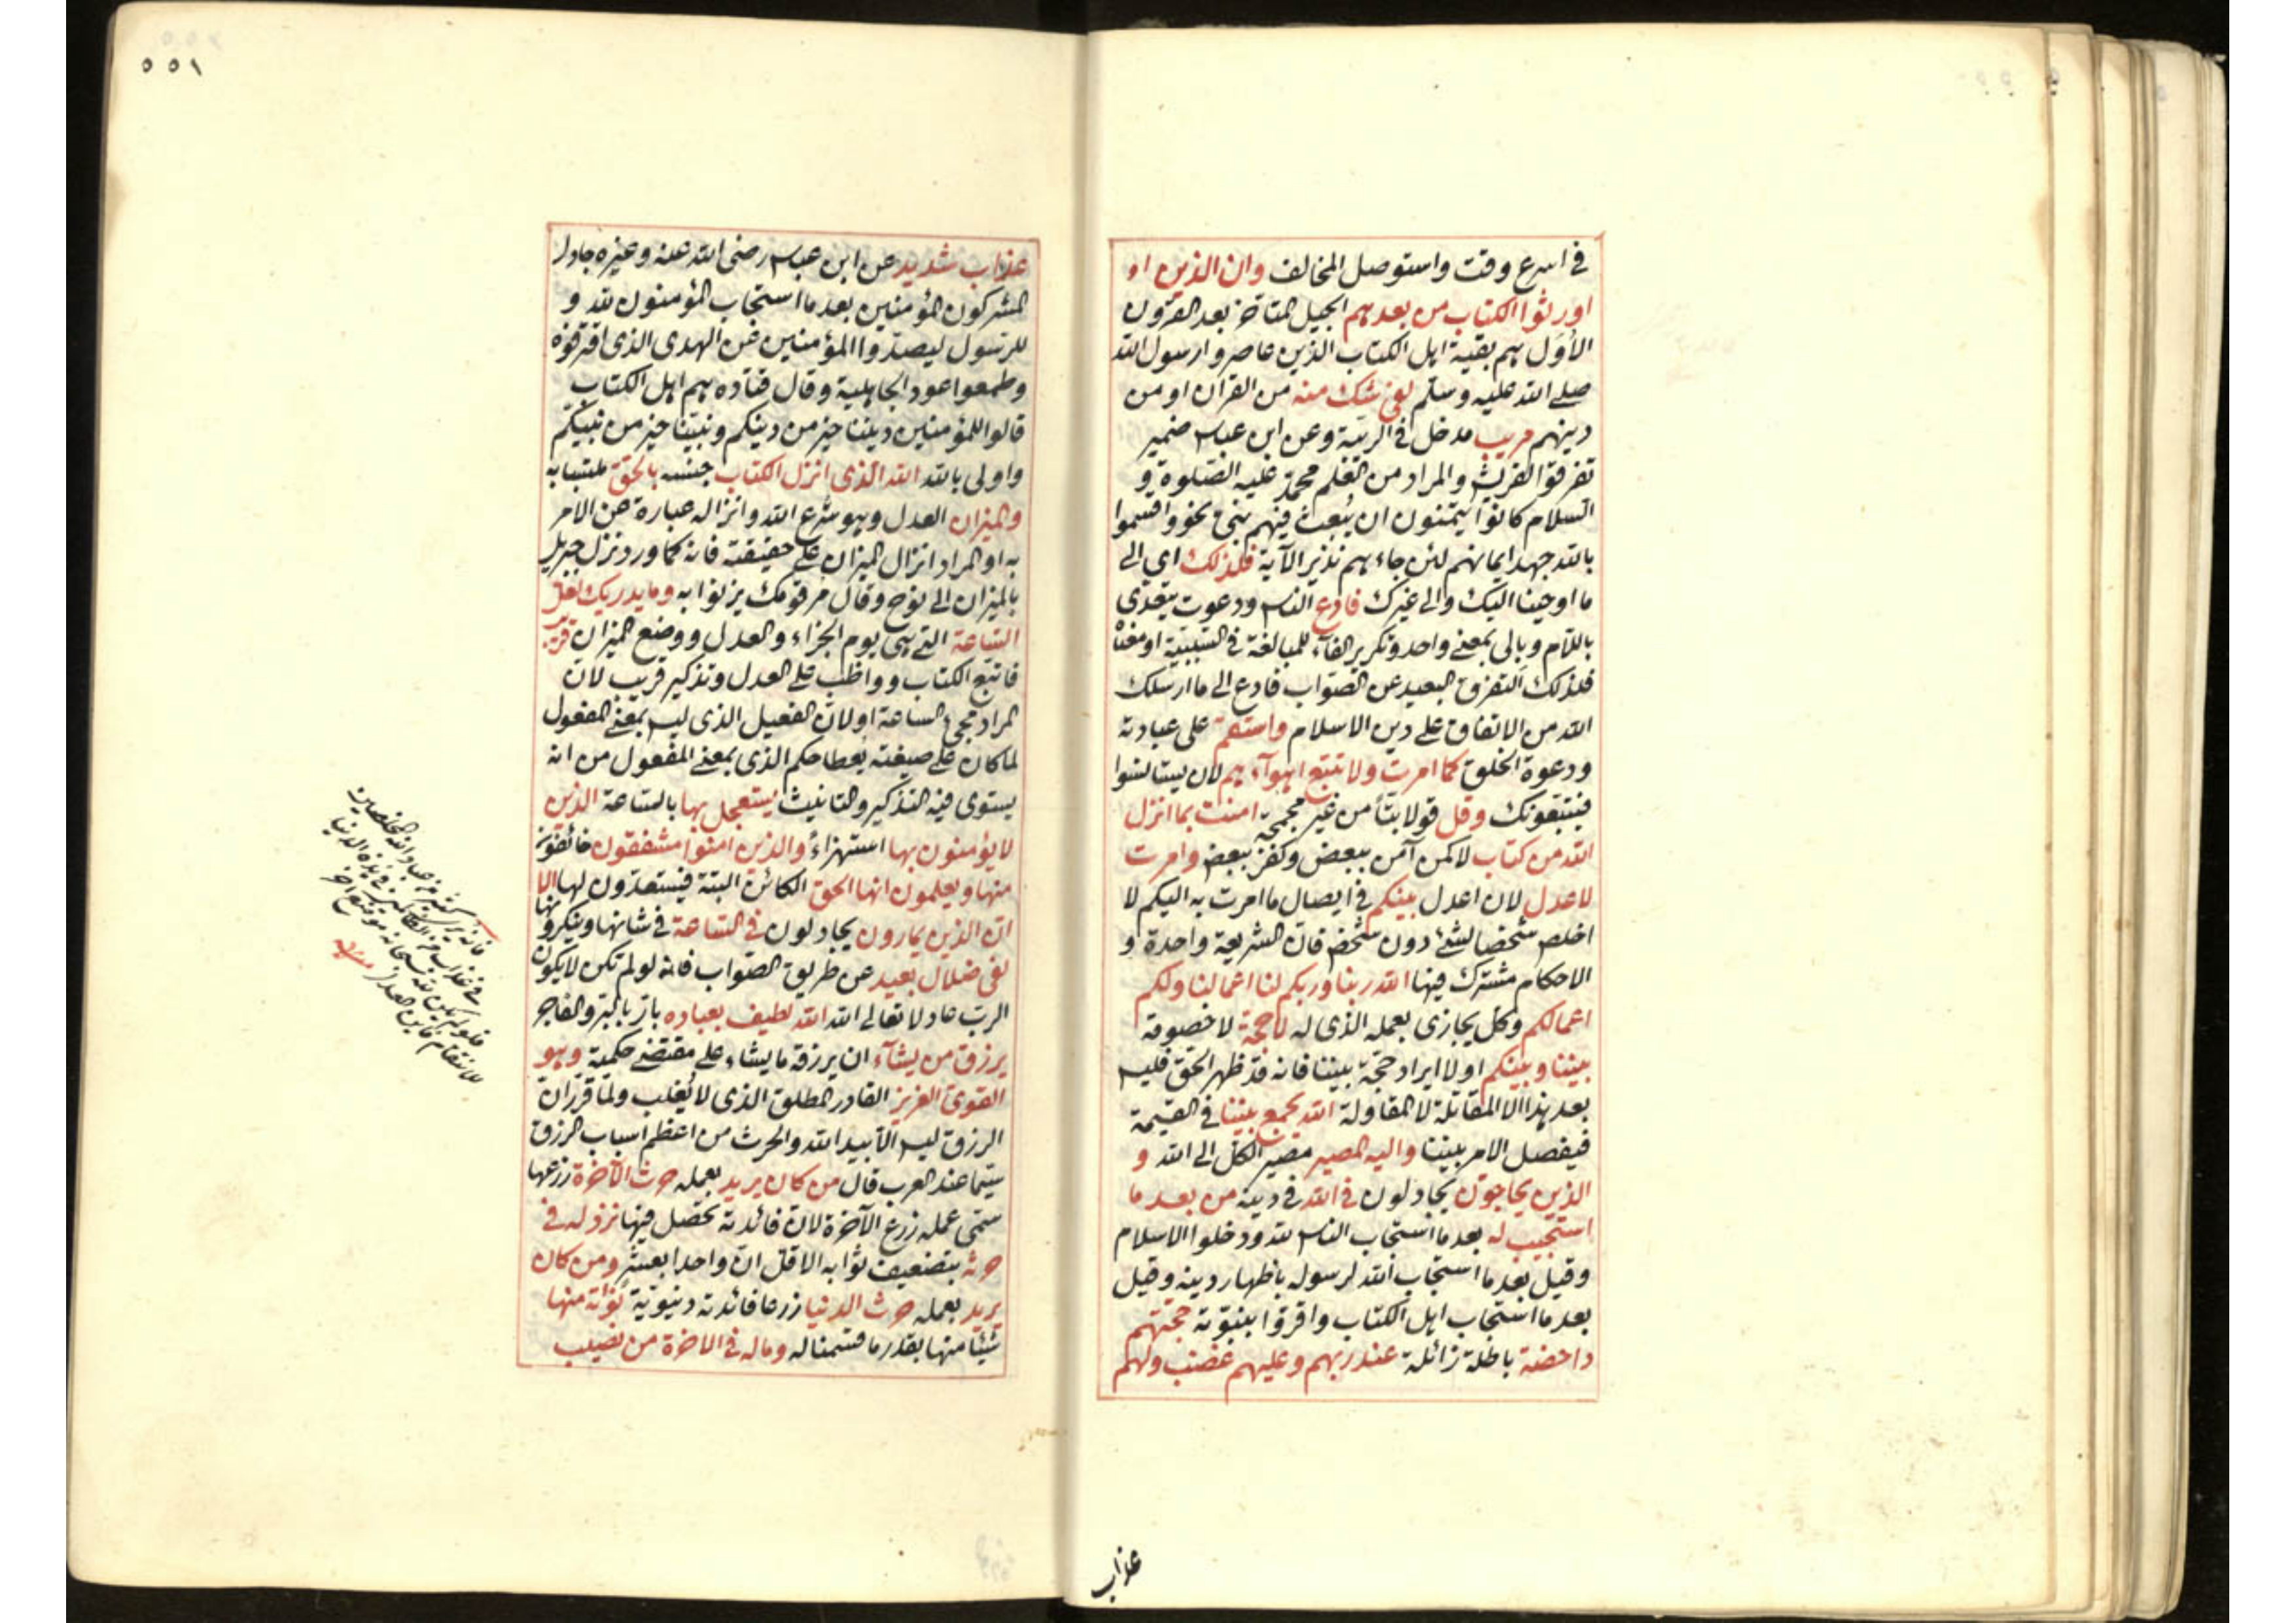 في اسرع وقت واستوصل المخالف وان الذين او
اورثوا الكتاب من بعدهم الجيل المتاخر بعد القرون
الاُوَل هم بقية اهل الكتاب الذين عاصروا رسول الله
صلى الله عليه وسلم لفى شك منه من القران او من
دينهم مريب مدخل في الريبة وعن ابن عباس ضمير
تفرقوا لقريش والمراد من العلم محمد عليه الصلوة و
السلام كانوا يتمنون ان يُبعث فيهم نبي نحو واقسموا
بالله جهد ايمانهم لئن جاءهم نذير الآية فلذلك اي الى
ما اوحينا اليك والى غيرك فادع الناس ودعوت يتعدى
باللام وبالى بمعنى واحد وتكرير الفآء للمبالغة في السببية او معناه
فلذلك التفرق البعيد عن الصواب فادع الى ما ارسلك
الله من الاتفاق على دين الاسلام واستقم على عبادته
ودعوة الخلق كما امرت ولا تتبع اهوآءهم لان يستالسوا
فيتبعونك وقل قولا بتّاً من غير مجمجة امنت بما انزل
الله من كتاب لا كمن آمن ببعض وكفر ببعض وامرت
لاعدل لان اعدل بينكم في ايصال ما امرت به اليكم لا
اخلص شخصا لشئ دون شخص فان الشريعة واحدة و
الاحكام مشترك فيها الله ربنا وربكم لنا اعمالنا ولكم
اعمالكم وكل يجازى بعمله الذى له لا حجة لا خصومة
بيننا وبينكم او لا ايراد حجة بيننا فانه قد ظهر الحق فليس
بعد هذا الا المقاتلة لا المقاولة الله يجمع بيننا في القيمة
فيفصل الامر بيننا واليه المصير مصير الكل الى الله و
الذين يحاجون يجادلون في الله في دينه من بعد ما
استجيب له بعد ما استجاب الناس لله ودخلوا الاسلام
وقيل بعد ما استجاب الله لرسوله باظهار دينه وقيل
بعد ما استجاب اهل الكتاب واقروا بنبوّته حجتهم
داحضة باطلة زائلة عند ربهم وعليهم غضب ولهم
عذاب
٥٥١
عذاب شديد عن ابن عباس رضى الله عنه وغيره جادل
المشركون المؤمنين بعد ما استجاب المؤمنون لله و
للرسول ليصدوا المؤمنين عن الهدى الذى
وطمعوا عود الجاهلية وقال قتاده هم اهل الكتاب
قالوا للمؤمنين ديننا خير من دينكم ونبينا خير من نبيكم
واولى بالله الله الذى انزل الكتاب جنسه بالحق ملتبسا به
والميزان العدل وهو شرع الله وانزاله عبارة عن الامر
به او المراد انزال الميزان على حقيقته فانه كما ورد نزل جبريل
بالميزان الى نوح وقال مُر قومك يزنوا به وما يدريك لعل
الساعة التى هي يوم الجزاء والعدل ووضع الميزان قريب
فاتبع الكتاب وواظب على العدل وتذكير قريب لان
المراد مجئ الساعة او لان الفعيل الذى ليس بمعنى المفعول
لما كان على صيغته يعطا حكم الذى بمعنى المفعول من انه
يستوى فيه التذكير والتانيث يستعجل بها بالساعة الذين
لا يؤمنون بها استهزاءً والذين امنوا مشفقون خائفون
منها ويعلمون انها الحق الكائن البتة فيستعدّون لها الا
ان الذين يمارون يجادلون في الساعة في شانها وينكرونها
لفى ضلال بعيد عن طريق الصواب فانه لو لم تكن لا يكون
الرب عادلا تعالى الله الله لطيف بعباده بارّ بالبر والفاجر
يرزق من يشآء ان يرزقه ما يشاء على مقتضى حكمته وهو
القوى العزيز القادر المطلق الذى لا يُغلب ولما قرر ان
الرزق ليس الا بيد الله والحرث من اعظم اسباب الرزق
سيما عند العرب قال من كان يريد بعمله حرث الآخرة زرعها
سمّى عمله زرع الآخرة لان فائدته تحصل فيها نزد له في
حرثه بتضعيف ثوابه الاقل ان واحدا بعشر ومن كان
يريد بعمله حرث الدنيا زرعا فائدته دنيوية نؤته منها
شيئا منها بقدر ما قسمنا له وما له في الاخرة من نصيب